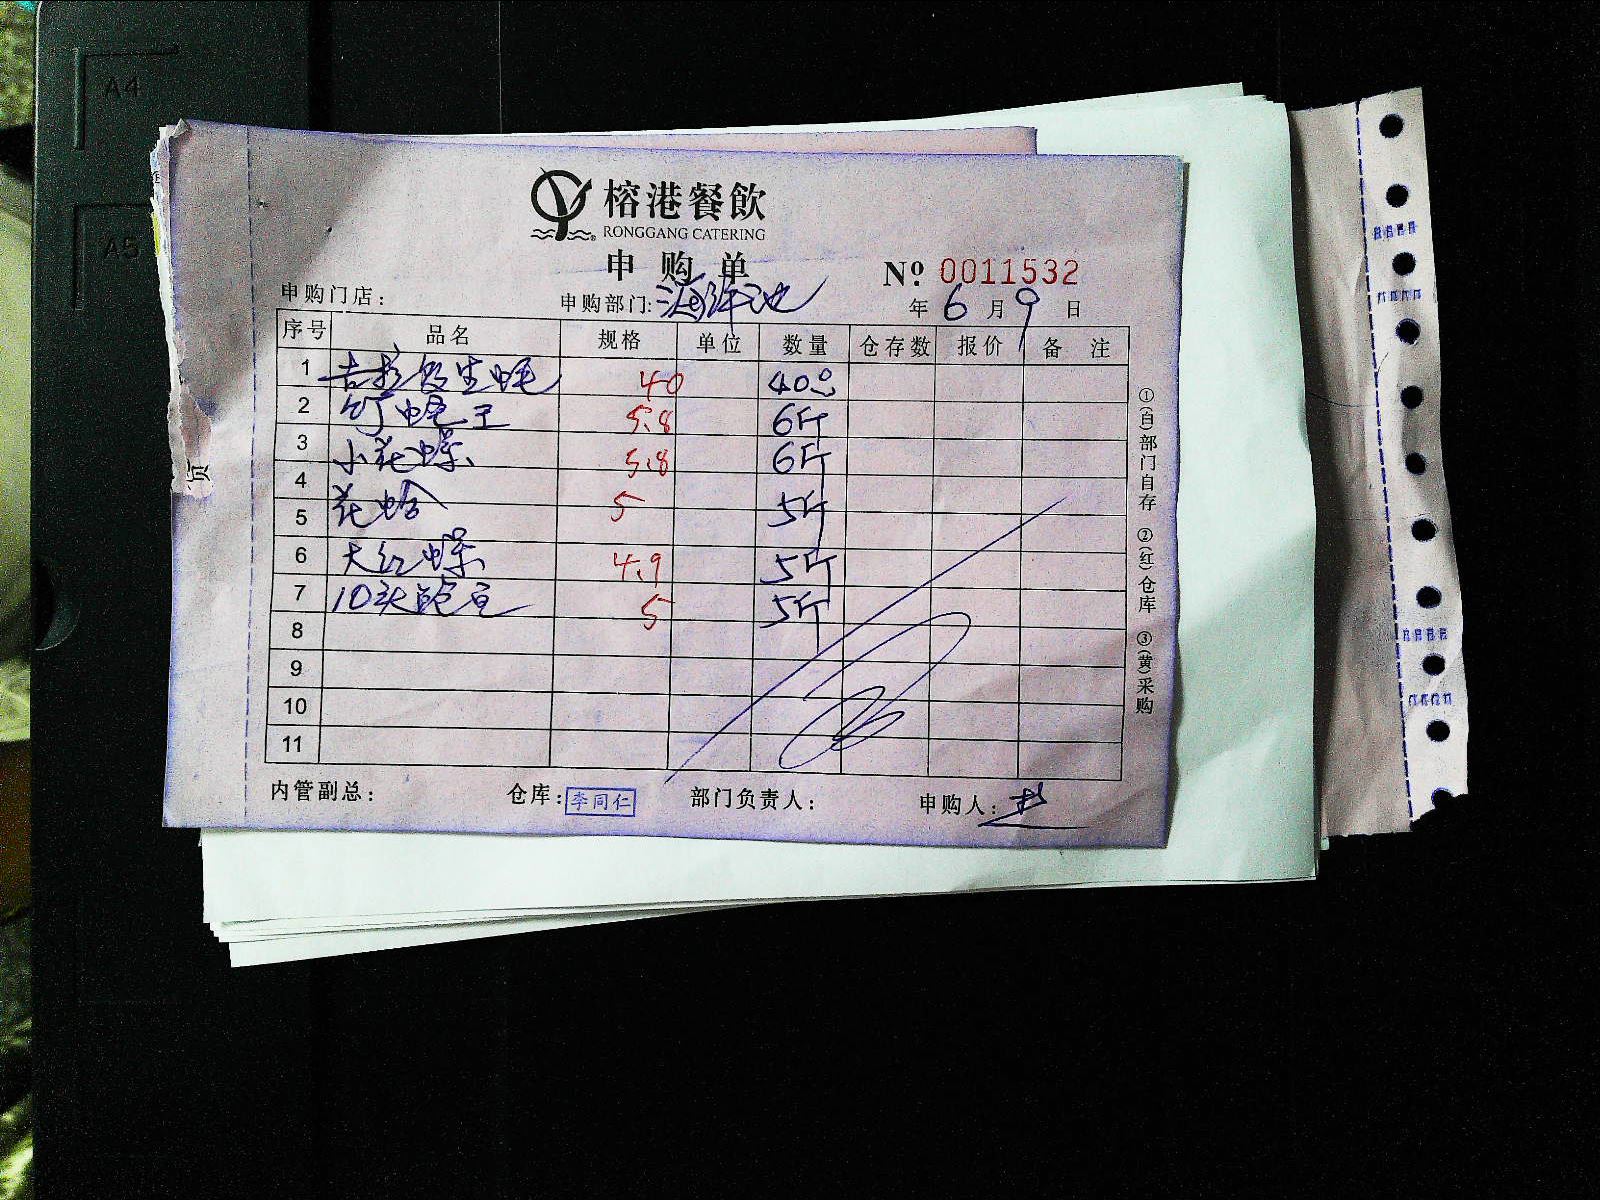 A4
A5
榕港餐飲
RONGGANG CATERING
申购单
Nº 0011532
申购门店：
申购部门:海鲜池
年 6 月 9 日
序号 品名 规格 单位 数量 仓存数 报价 备 注
1 吉拉多生蚝 40 40只
2 竹蛏王 5.8 6斤
3 小花螺 5.8 6斤
4
5 花蛤 5 5斤
6 大红螺 4.9 5斤
7 10头鲍鱼 5 5斤
8
9
10
11
①(白)部门自存 ②(红)仓库 ③(黄)采购
内管副总： 仓库：李同仁 部门负责人： 申购人：